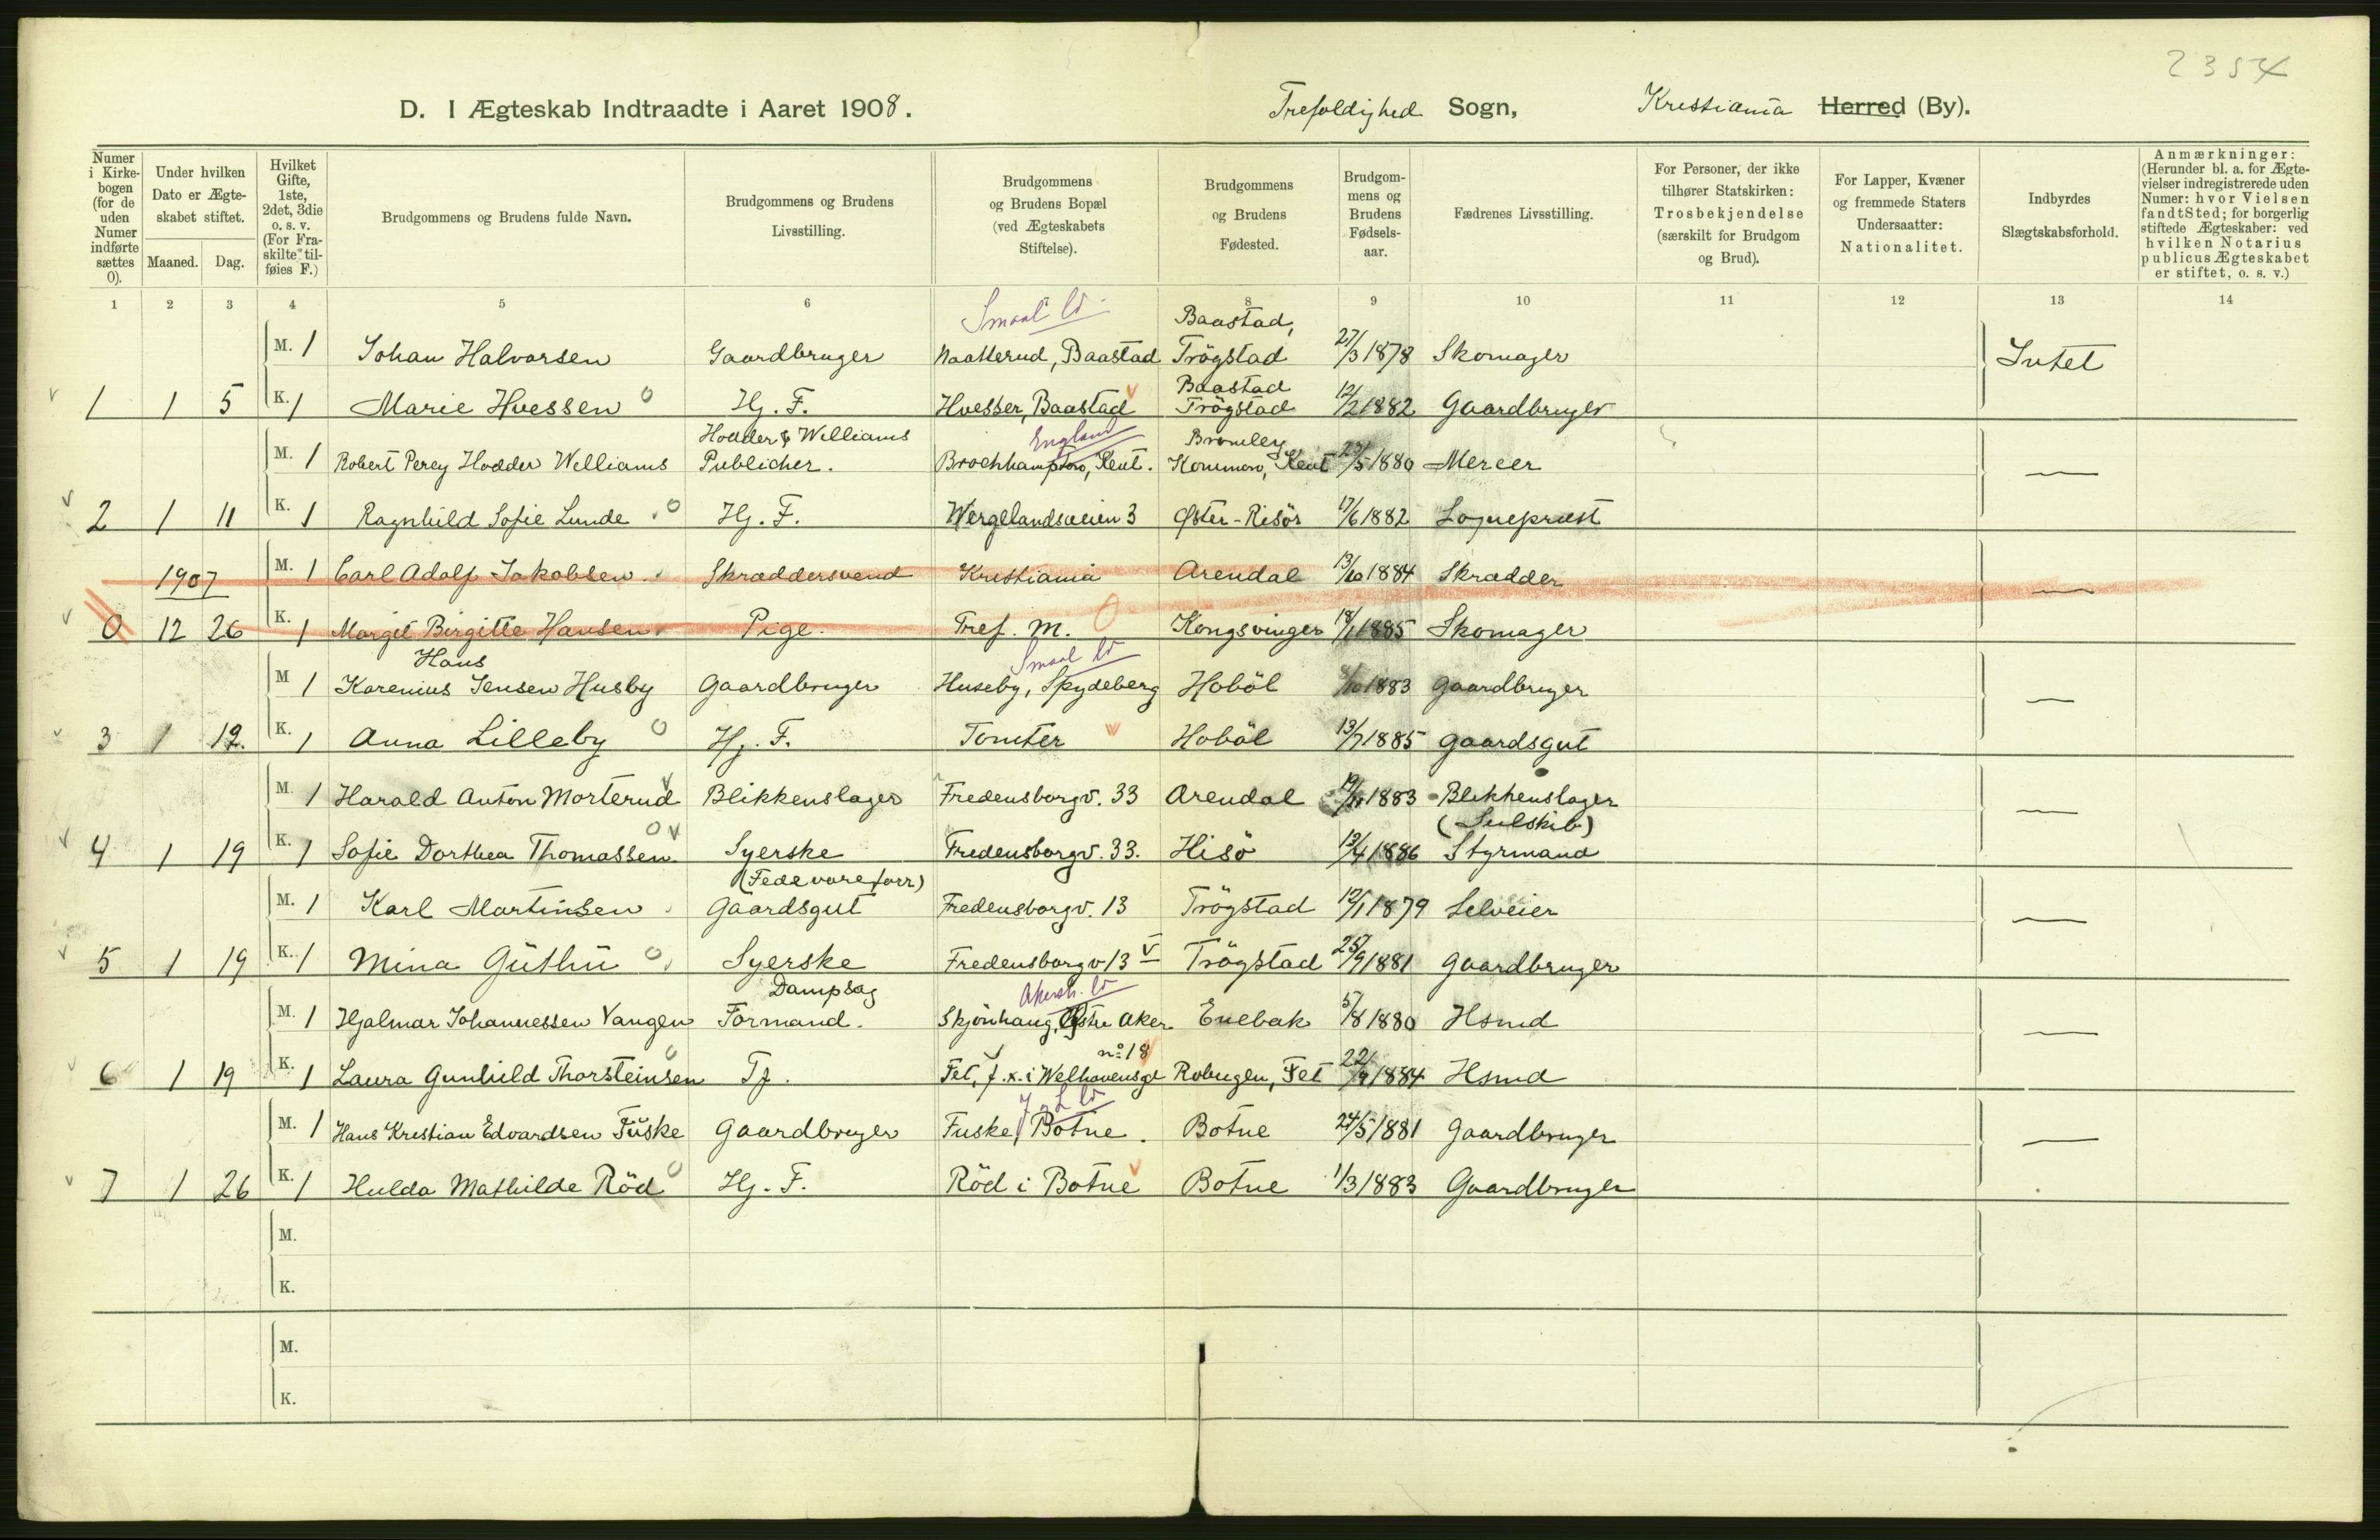 2354
D. I Ægteskab Indtraadte i Aaret 1908. Trefoldighed Sogn, Kristiania Herred (By).
Numer i Kirkebogen (for de uden Numer indførte sættes 0). Under hvilken Dato er Ægteskabet stiftet. Maaned. Dag. Hvilket Gifte, 1ste, 2det, 3die o. s. v. (For Fraskilte tilføies F.) Brudgommens og Brudens fulde Navn. Brudgommens og Brudens Livsstilling. Brudgommens og Brudens Bopæl (ved Ægteskabets Stiftelse). Brudgommens og Brudens Fødested. Brudgommens og Brudens Fødselsaar. Fædrenes Livsstilling. For Personer, der ikke tilhører Statskirken: Trosbekjendelse (særskilt for Brudgom og Brud). For Lapper, Kvæner og fremmede Staters Undersaatter: Nationalitet. Indbyrdes Slægtskabsforhold. Anmærkninger: (Herunder bl. a. for Ægtevielser indregistrerede uden Numer: hvor Vielsen fandt Sted; for borgerlig stiftede Ægteskaber: ved hvilken Notarius publicus Ægteskabet er stiftet, o. s. v.)
1 2 3 4 5 6 7 8 9 10 11 12 13 14
Smaal
Baastad,
M. 1 Johan Halvorsen Gaardbruger Naatterud, Baastad Trögstad 27/3 1878 Skomager Intet
Baastad
1 1 5 K. 1 Marie Huessen Hj. F. Huesser, Baastad Trögstad 12/2 1882 Gaardbruger
Hodder & Williams England Bromley
M. 1 Robert Percy Hodder Williams Publicher. Brochhampton, Kent. Kommon, Kent 1880 Mercer —
2 1 11 K. 1 Ragnhild Sofie Lunde Hj. F. Wergelandsveien 3 Øster-Risör 17/6 1882 Sogneprest
1907 M. 1 Carl Adolf Jakobsen Skræddersvend Kristiania Arendal 13/10 1884 Skrædder —
0 12 26 K. 1 Margit Birgitte Hansen Pige. Tref. M. Kongsvinger 18/1 1885 Skomager
Hans Smaal
M 1 Karenius Jensen Husby Gaardbruger Huseby, Spydeberg Hobøl 1883 Gaardbruger —
3 1 12. K. 1 Anna Lilleby Hj. F. Tomter Hobøl 13/7 1885 Gaardsgut
M. 1 Harald Anton Morterud Blikkenslager Fredensborgv. 33 Arendal 1883 Blikkenslager —
(Seilskib)
4 1 19 K. 1 Sofie Dorthea Thomassen Syerske Fredensborgv. 33. Hisö 13/4 1886 Styrmand
(Fedevareforr)
M. 1 Karl Martinsen Gaardsgut Fredensborgv. 13 Trögstad 12/1 1879 Selveier —
5 1 19 K. 1 Mina Güthu Syerske Fredensborgv 13 Trögstad 25/9 1881 Gaardbruger
Dampsag Akersh.
M. 1 Hjalmar Johannessen Vangen Formand. Skjönhaug, Østre Aker Enebak 5/8 1880 Hsmd —
no 18
6 1 19 K. 1 Laura Gunhild Thorsteinsen Tj. Fet, f. x. i Welhavensgt Robugen, Fet 22/9 1884 Hsmd
J. L.
M. 1 Hans Kristian Edvardsen Fuske Gaardbruger Fuske, Botne. Botne 24/5 1881 Gaardbruger —
7 1 26 K. 1 Hulda Mathilde Röd Hj. F. Röd i Botne Botne 1/3 1883 Gaardbruger
M.
K.
M.
K.